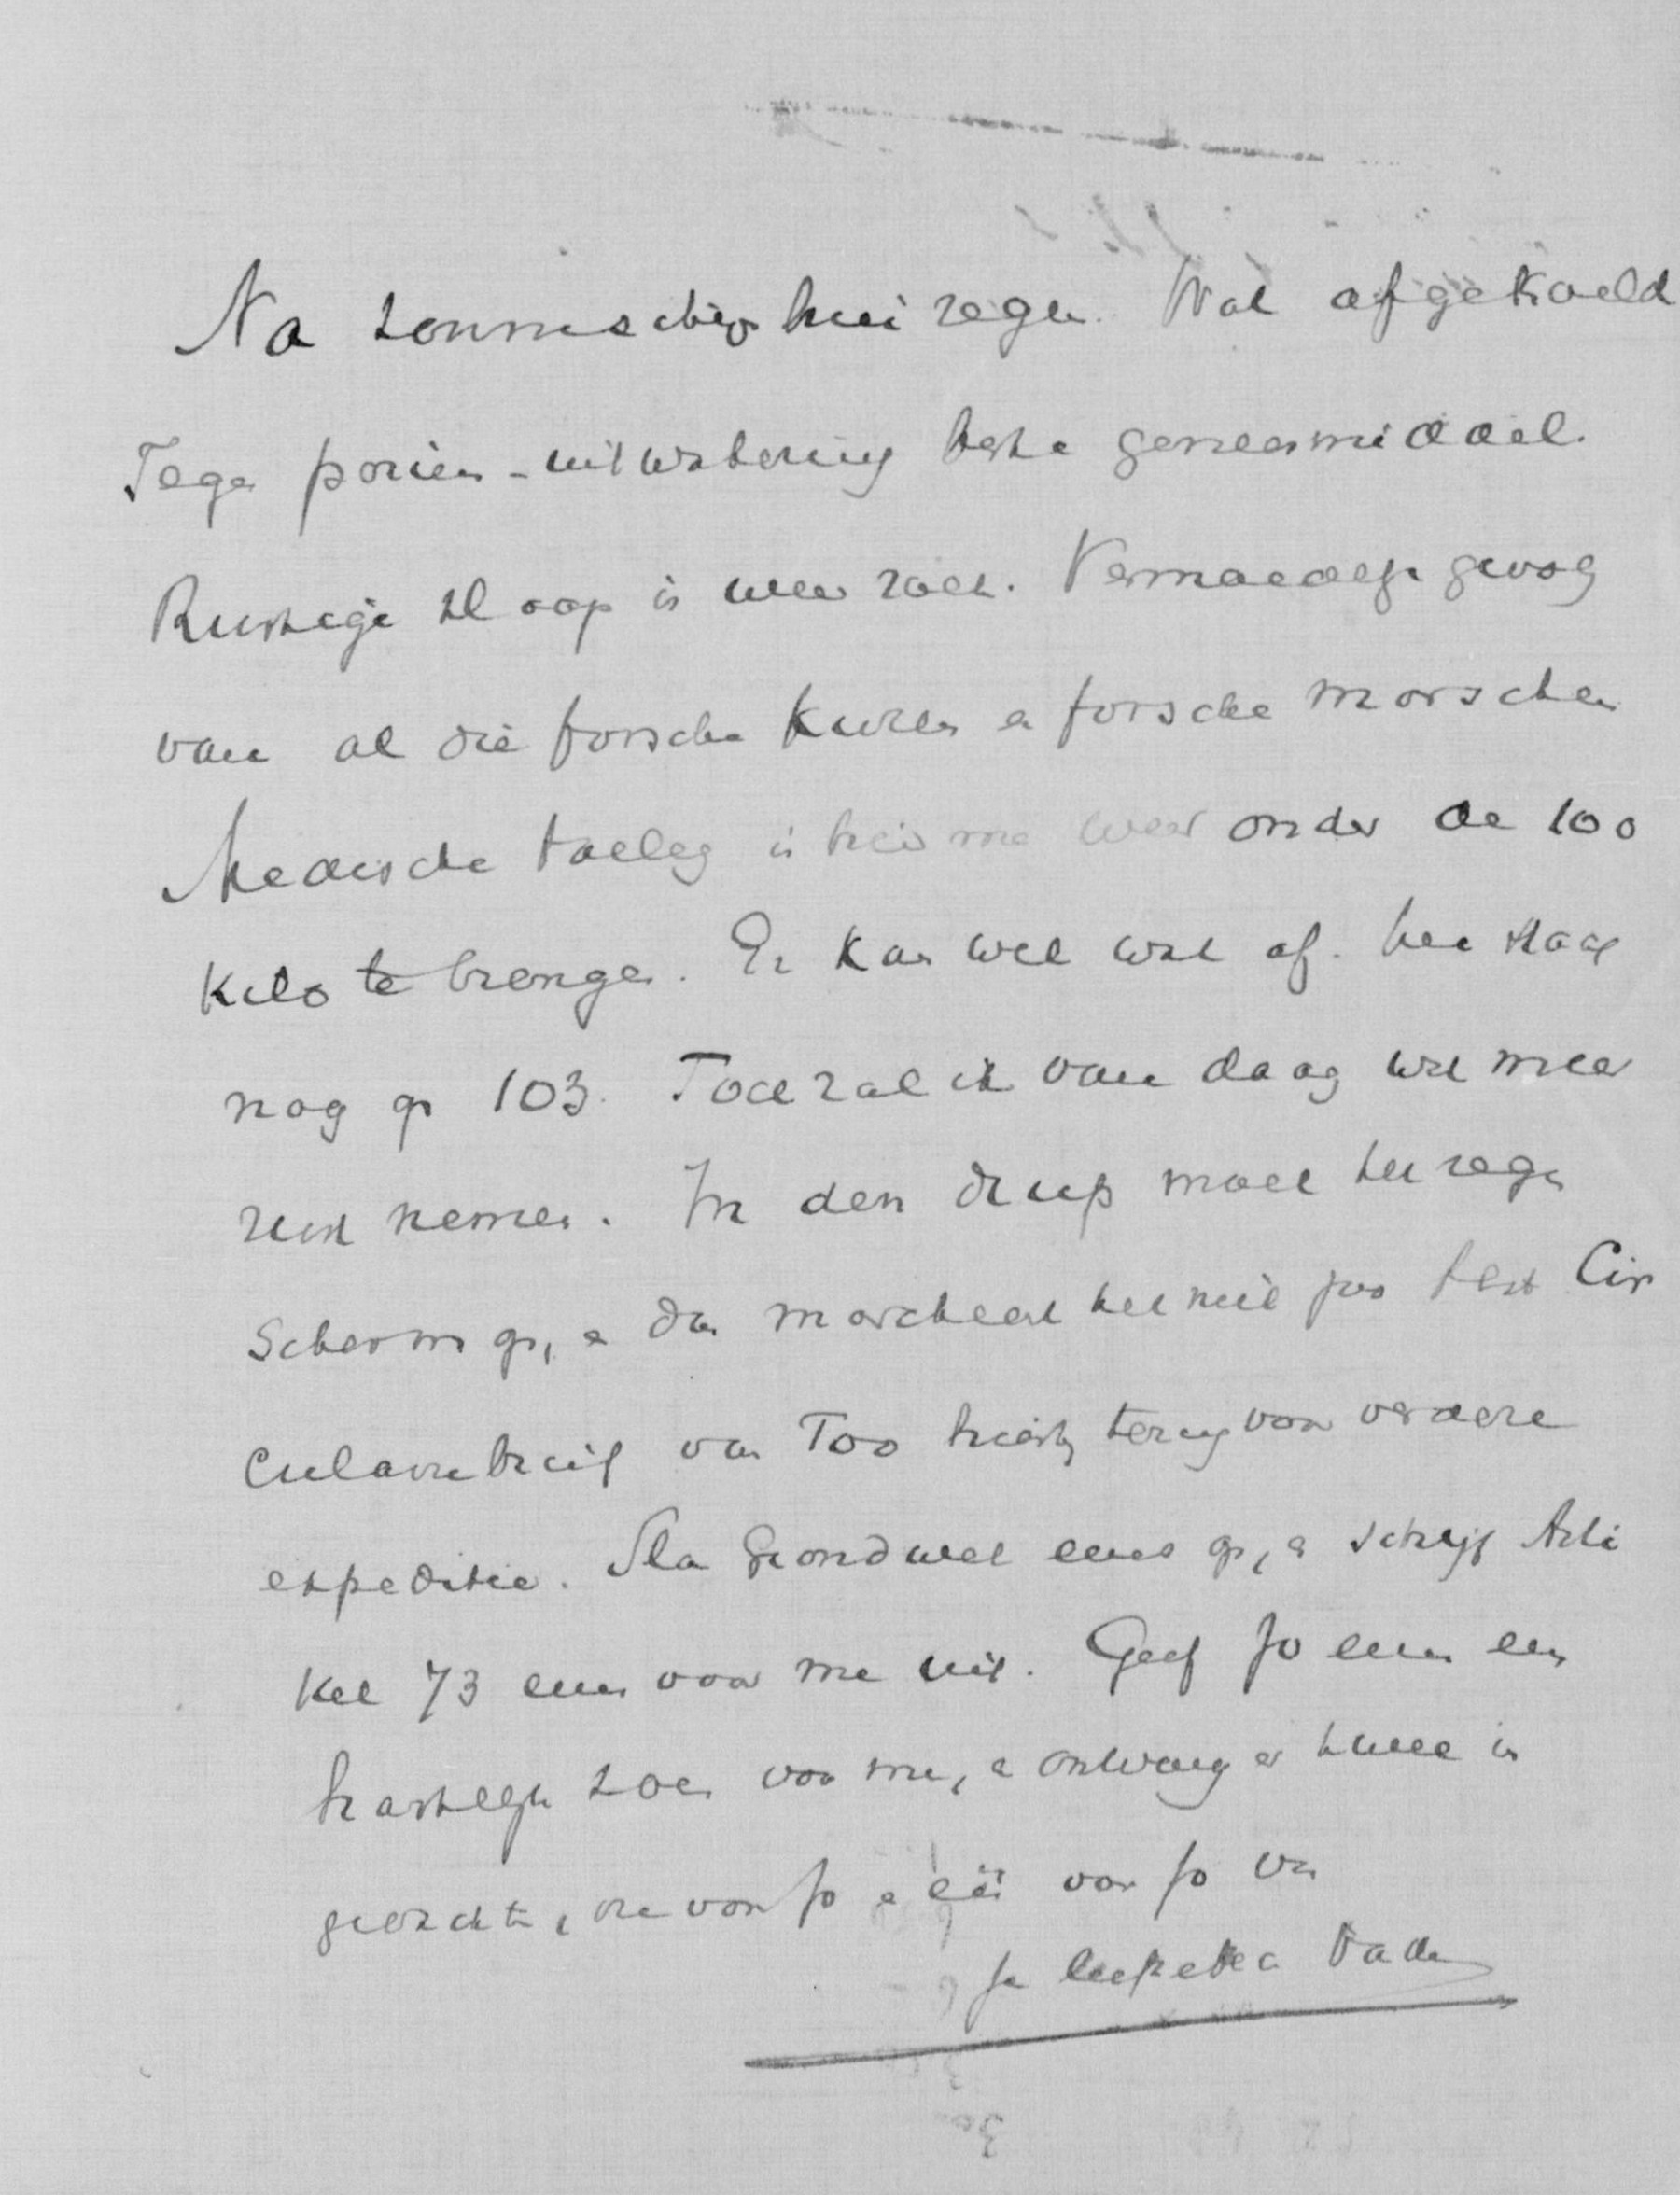 Na zonneschijn hui regen. Wat afgekoeld
Tegen poriën-uitwatering beste geneesmiddel.
Rustige slaap is weer zoet. Vermoeidheid genoeg
van al die forsche kuren en forsche marschen
Medische toeleg is hier me weer onder de 100
kilo te brengen. Er kan wel wat af. Ben staag
nog op 103. Toch zal ik van daag wat meer
rust nemen. In den drup moet het regen
scherm op, en dan marcheert het niet zoo best Cir
culaire brief van Too hierbij terug voor verdere
expeditie. Sla Grondwet eens op, en schrijf Arti
kel 73 eens voor me uit. Geef Jo eens een
hartelijke zoen voor me, en ontvang er twee in
gedachte, een voor Jo en één voor Jo van
je liefhebbe Vader